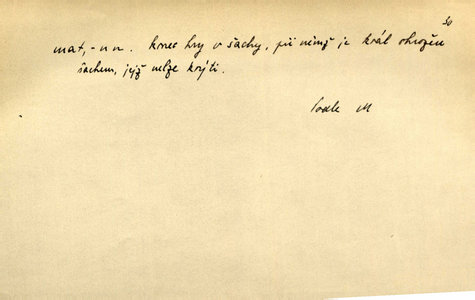 30
mat, -u m. konec hry v šachy, při němž je král ohrožen
šachem, jejž nelze krýti.
Podle M